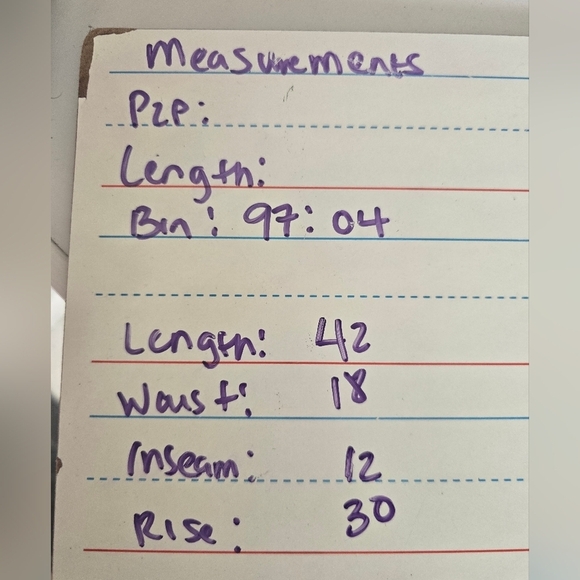 Measurements
P2P:
Length:
Bin: 97:04
Length: 42
Waist: 18
Inseam: 12
Rise: 30